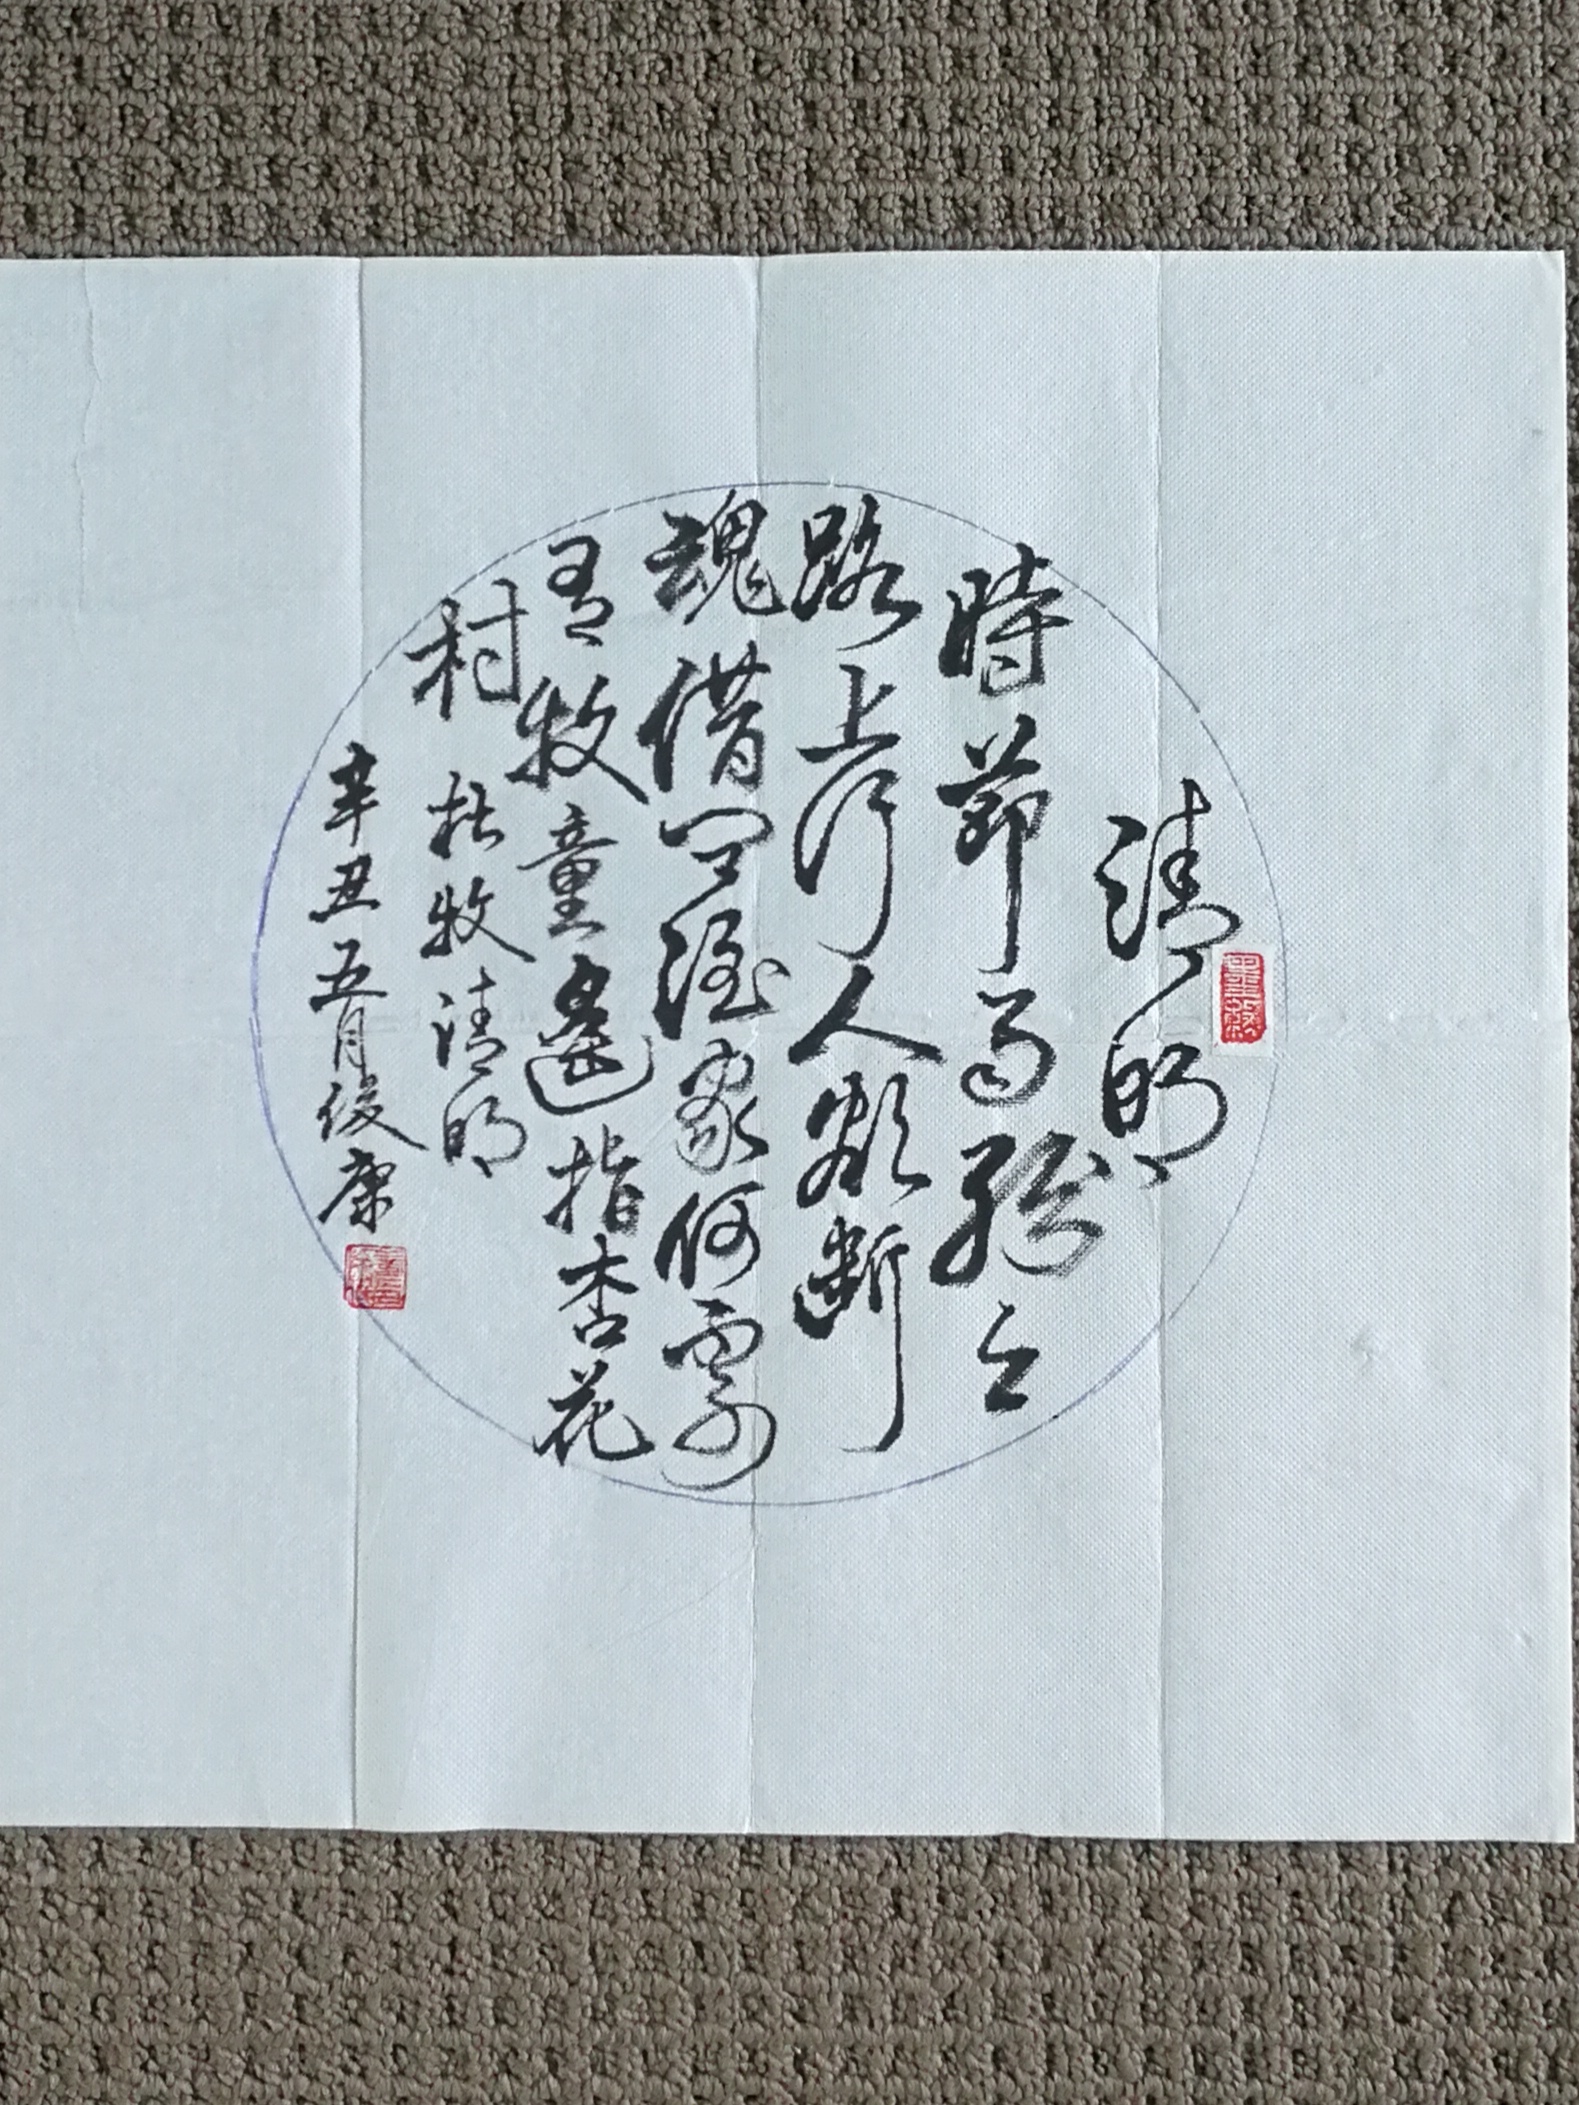 清明
時節雨紛々
路上行人欲斷
魂借問酒家何處
有牧童遙指杏花
村 杜牧清明
辛丑五月俊康
墨緣